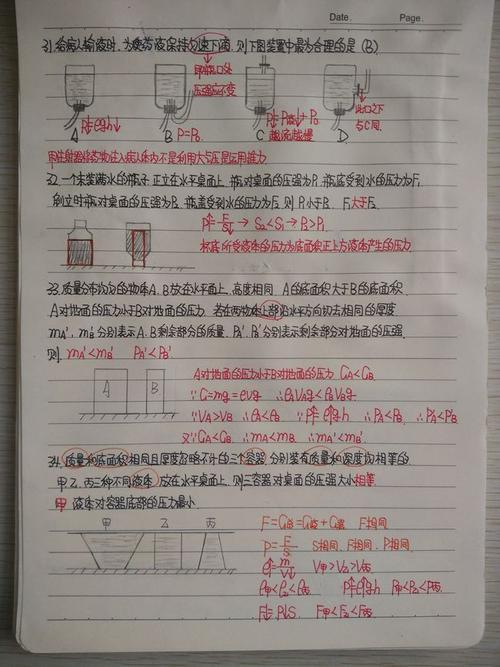 Date. Page.
31.给病人输液时,为使药液保持匀速下滴,则下图装置中最为合理的是(B)
即瓶口处
压强应不变
A B C D
P=ρgh↓
P=P₀
P=P液↓+P₀
越流越慢
此口之下
与C同.
用注射器将药物注入病人体内不是利用大气压是运用推力
32.一个未装满水的瓶子正立在水平桌面上,瓶对桌面的压强为P₁,瓶底受到水的压力为F₁,
倒立时瓶对桌面的压强为P₂,瓶盖受到水的压力为F₂则P₁小于P₂ F₁大于F₂
P=F/S → S₂<S₁ → P₂>P₁
杯底所受液体的压力为底面积正上方液体产生的压力
33.质量分布均匀的物体A.B放在水平面上,高度相同.A的底面积大于B的底面积.
A对地面的压力小于B对地面的压力.若在两物体上部沿水平方向切去相同的厚度
mA',mB'分别表示A.B剩余部分的质量.PA'.PB'分别表示剩余部分对地面的压强.
则 mA'<mB' PA'<PB'.
A B
A对地面的压力小于B对地面的压力.GA<GB.
∵G=mg=ρvg ∴ρAVAg<ρBVBg
∵VA>VB ∴ρA<ρB ∵P=ρgh ∴PA<PB ∴PA'<PB'
又∵GA<GB ∴mA<mB ∴mA'<mB'
34.质量和底面积相同且厚度忽略不计的三个容器,分别装有质量和深度均相等的
甲.乙.丙三种不同液体,放在水平桌面上,则三容器对桌面的压强大小相等
甲 液体对容器底部的压力最小.
甲 乙 丙
F=G总=G液+G器 F相同
P=F/S S相同.F相同.P相同.
ρ=m/V V甲>V乙>V丙
ρ甲<ρ乙<ρ丙 P=ρgh P甲<P乙<P丙
F=PS F甲<F乙<F丙